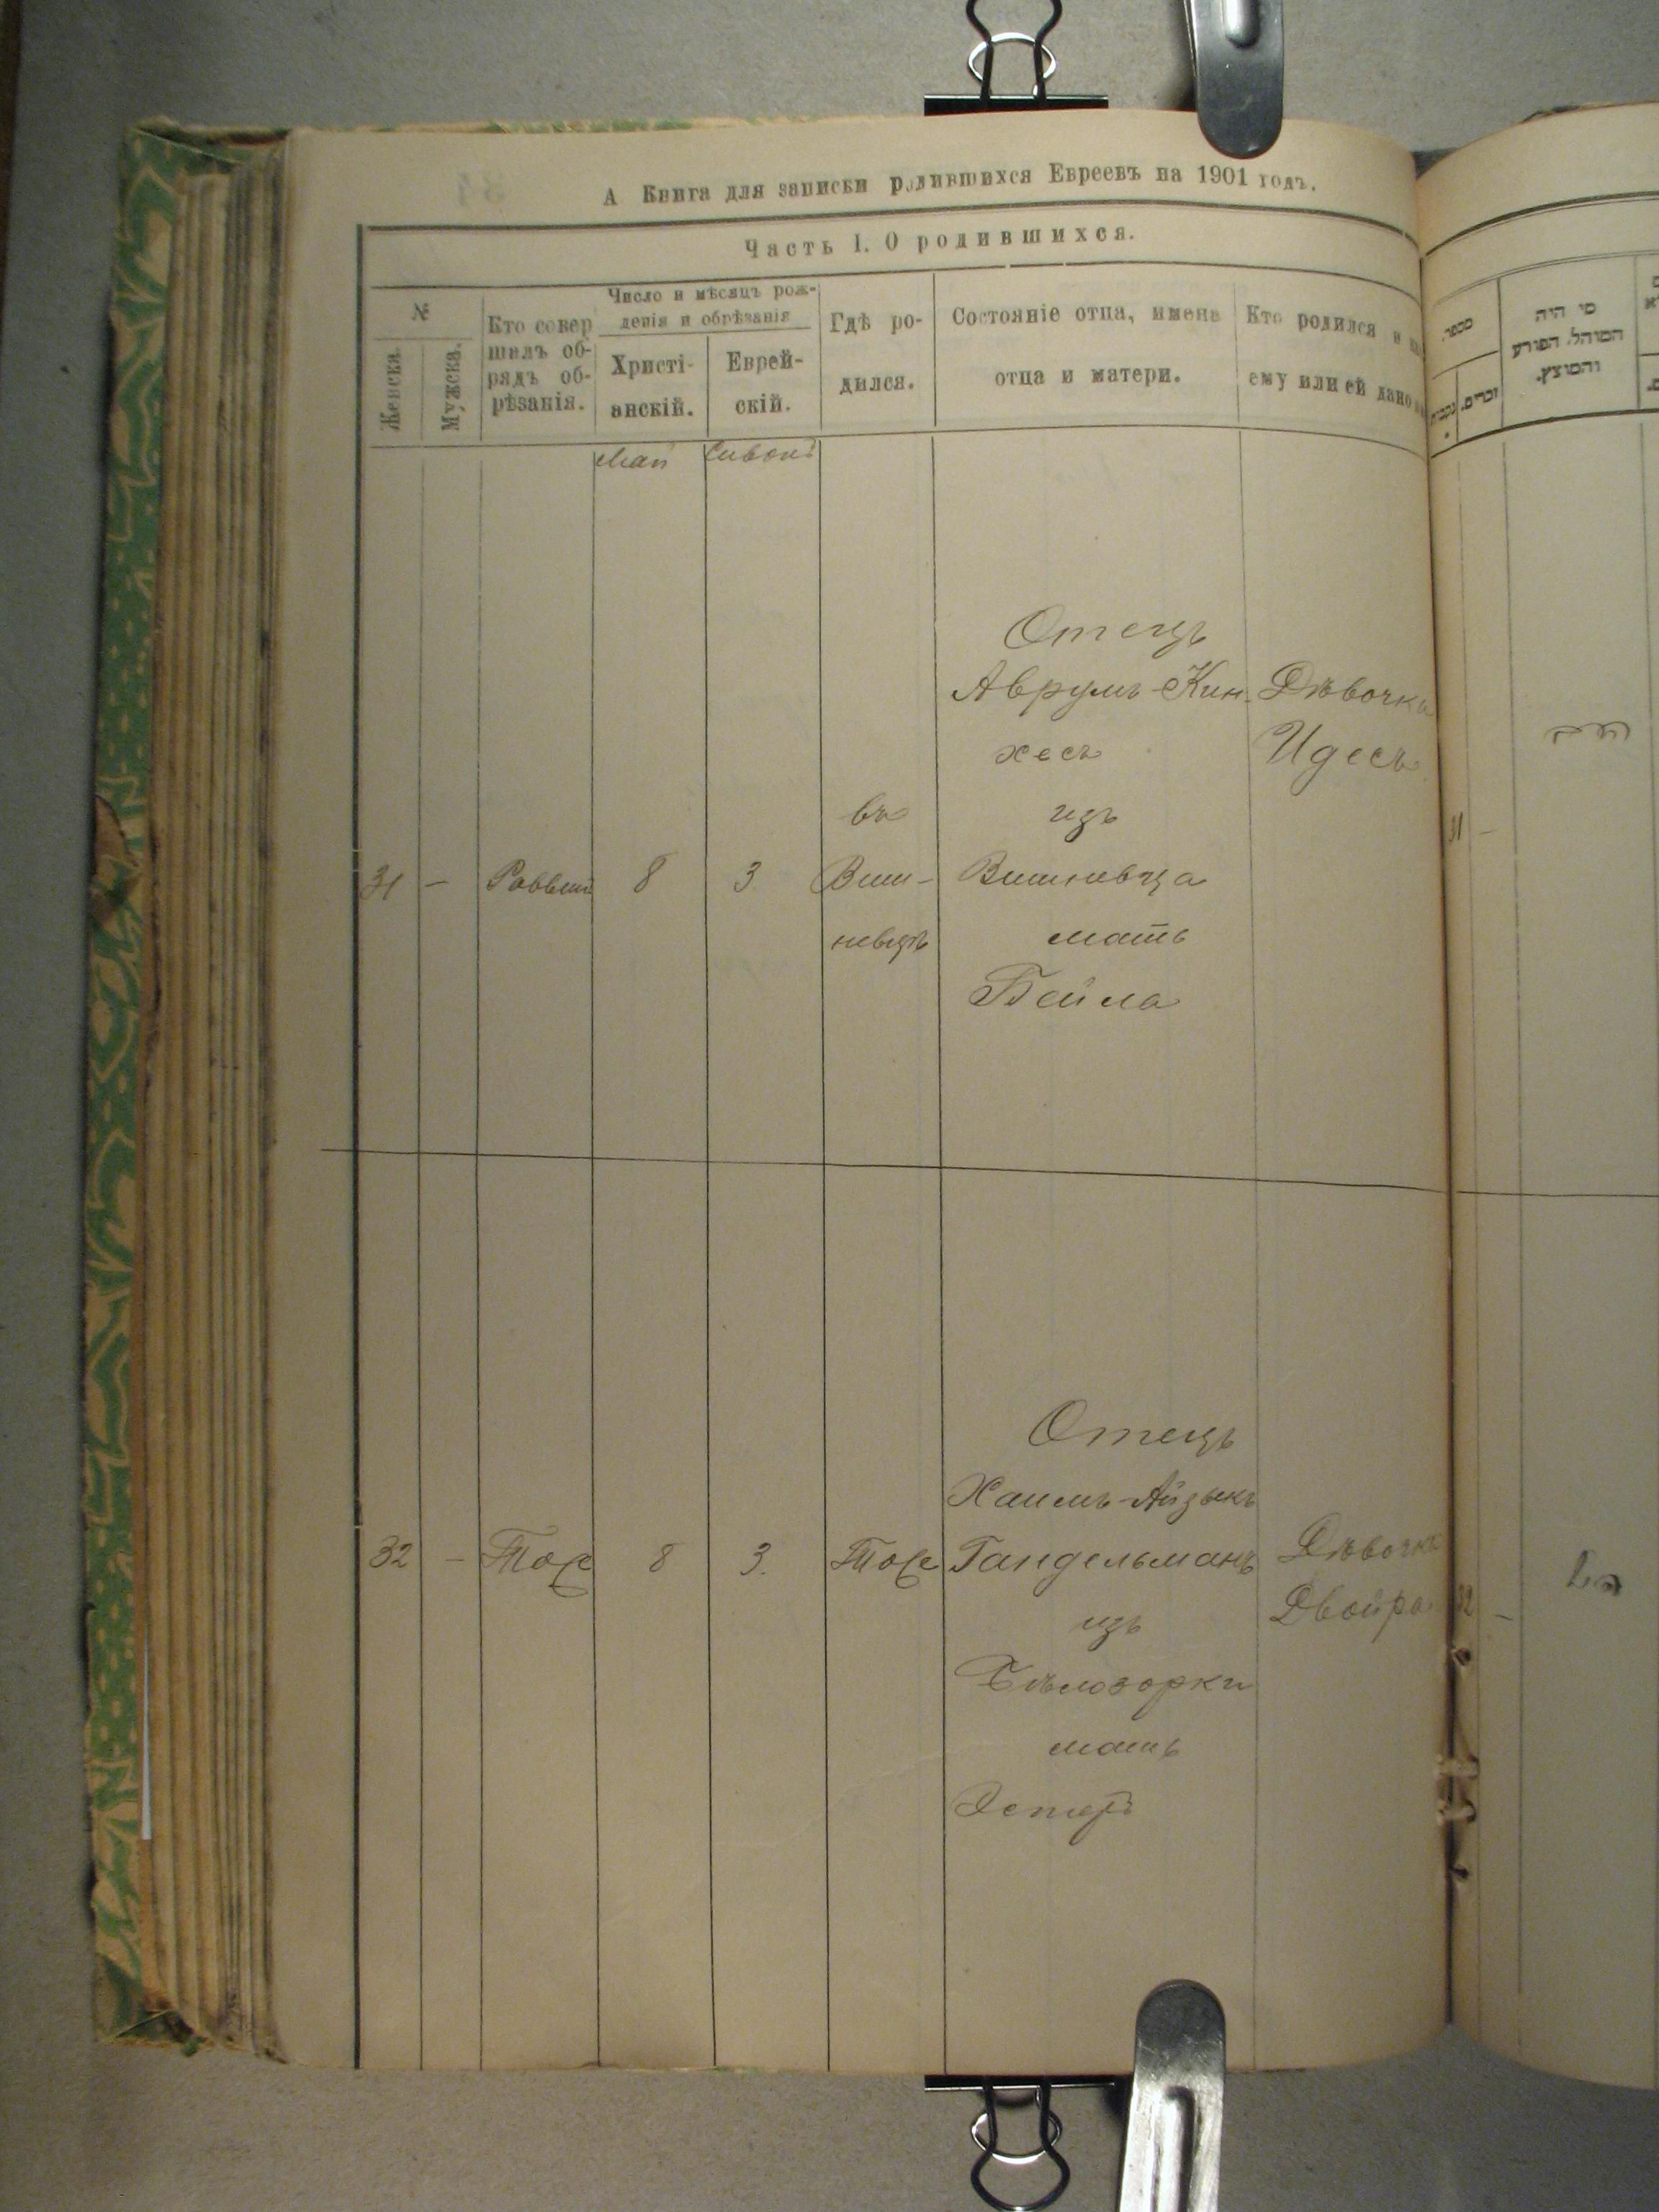 А Книга для записки родившихся Евреевъ на 1901 годъ.
Часть I. О родившихся.
№
Женска.
Мужска.
Кто совер
шилъ об-
рядъ об-
рѣзанія.
Число и мѣсяцъ рож-
денія и обрѣзанія
Христі-
анскій.
Еврей-
скій.
Гдѣ ро-
дился.
Состояніе отца, имена
отца и матери.
Кто родился и
ему или ей дано
Май
Сивонъ
31 – Раввинъ 8 3
въ
Виш-
невцѣ
Отецъ
Аврумъ Кин-
хесъ
изъ
Вишневца
мать
Бейла
Дѣвочка
Идесь
32 – Тоже 8 3. Тоже
Отецъ
Хаимъ-Айзыкъ
Гандельманъ
изъ
Бѣлозорки
мать
Эстеръ
Дѣвочка
Двойра
מספר
נקבות
זכרים.
מי היה
המוהל, הפורע
והמוצץ.
31 –
32 –